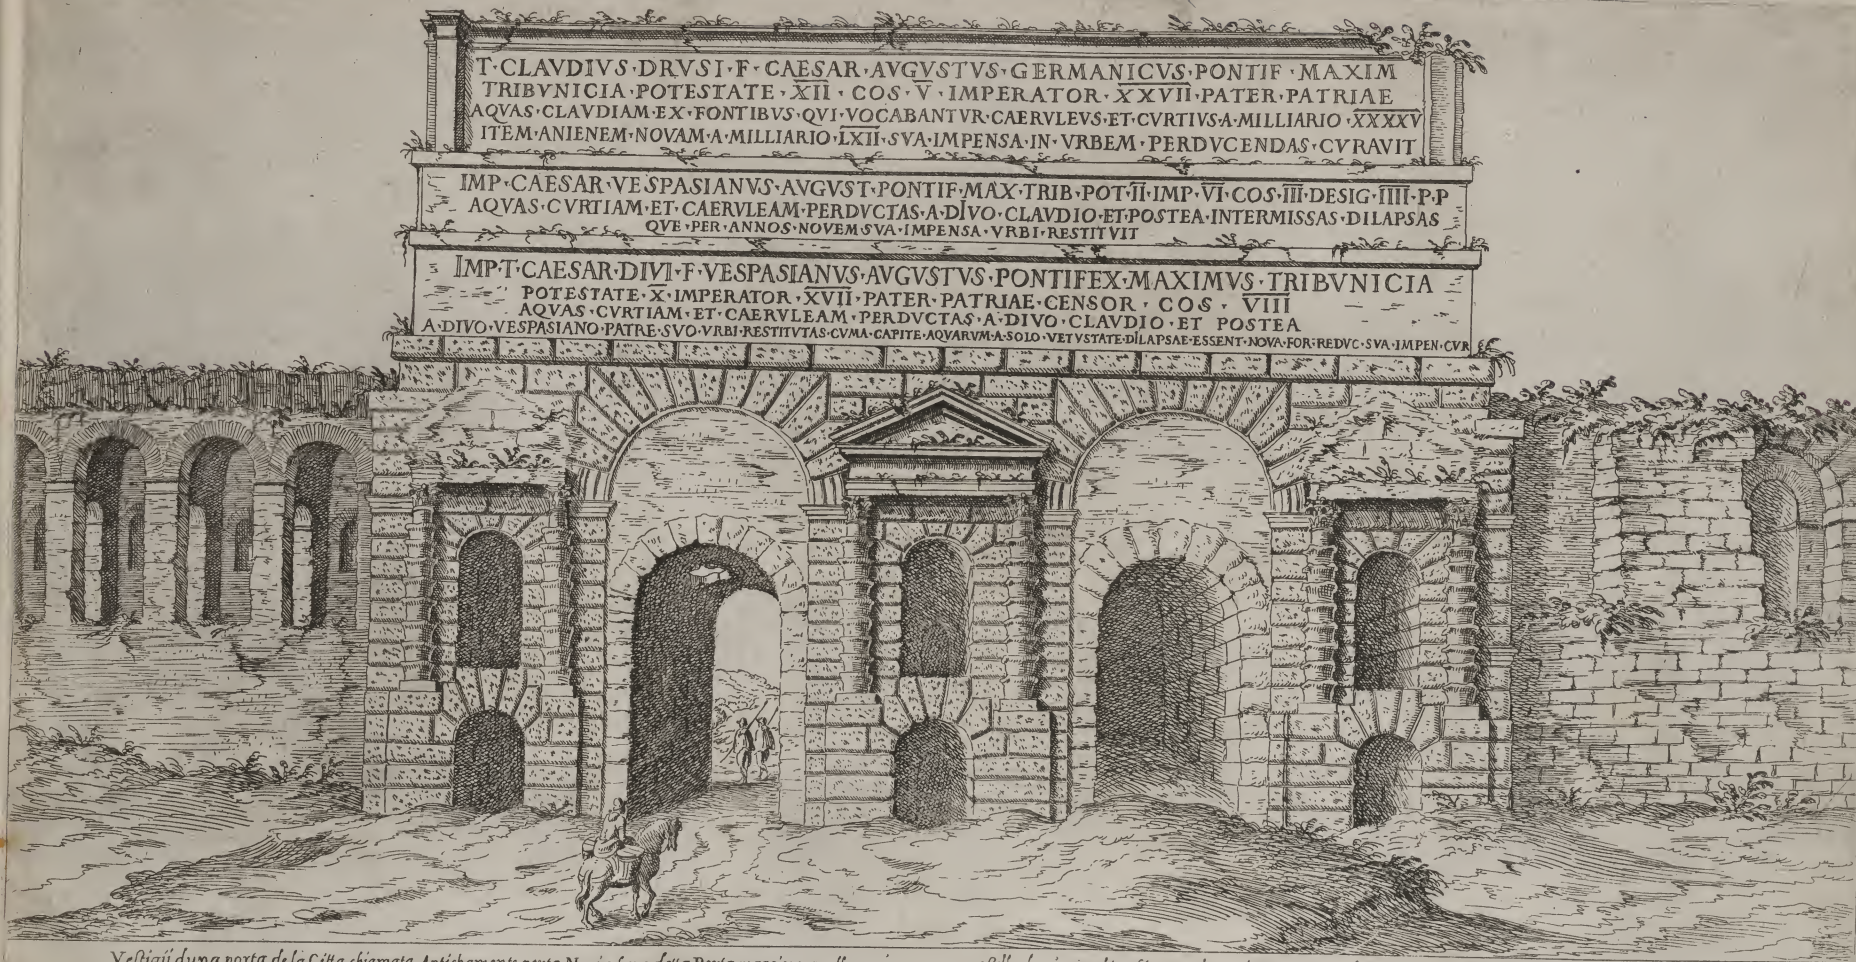 T·CLAVDIVS·DRVSI·F·CAESAR·AVGVSTVS·GERMANICVS·PONTIF·MAXIM
TRIBVNICIA·POTESTATE·XII·COS·V·IMPERATOR·XXVII·PATER·PATRIAE
AQVAS·CLAVDIAM·EX·FONTIBVS·QVI·VOCABANTVR·CAERVLEVS·ET·CVRTIVS·A·MILLIARIO·XXXXV
ITEM·ANIENEM·NOVAM·A·MILLIARIO·LXII·SVA·IMPENSA·IN·VRBEM·PERDVCENDAS·CVRAVIT
IMP·CAESAR·VESPASIANVS·AVGVST·PONTIF·MAX·TRIB·POT·II·IMP·VI·COS·III·DESIG·IIII·P·P
AQVAS·CVRTIAM·ET·CAERVLEAM·PERDVCTAS·A·DIVO·CLAVDIO·ET·POSTEA·INTERMISSAS·DILAPSAS
QVE·PER·ANNOS·NOVEM·SVA·IMPENSA·VRBI·RESTITVIT
IMP·T·CAESAR·DIVI·F·VESPASIANVS·AVGVSTVS·PONTIFEX·MAXIMVS·TRIBVNICIA
POTESTATE·X·IMPERATOR·XVII·PATER·PATRIAE·CENSOR·COS·VIII
AQVAS·CVRTIAM·ET·CAERVLEAM·PERDVCTAS·A·DIVO·CLAVDIO·ET POSTEA
A·DIVO·VESPASIANO·PATRE·SVO·VRBI·RESTITVTAS·CVMA·CAPITE·AQVARVM·A·SOLO·VETVSTATE·DILAPSAE·ESSENT·NOVA·FOR·REDVC·SVA·IMPEN·CVR
Vestigii duna porta de la Citta chiamata Antichamente porta